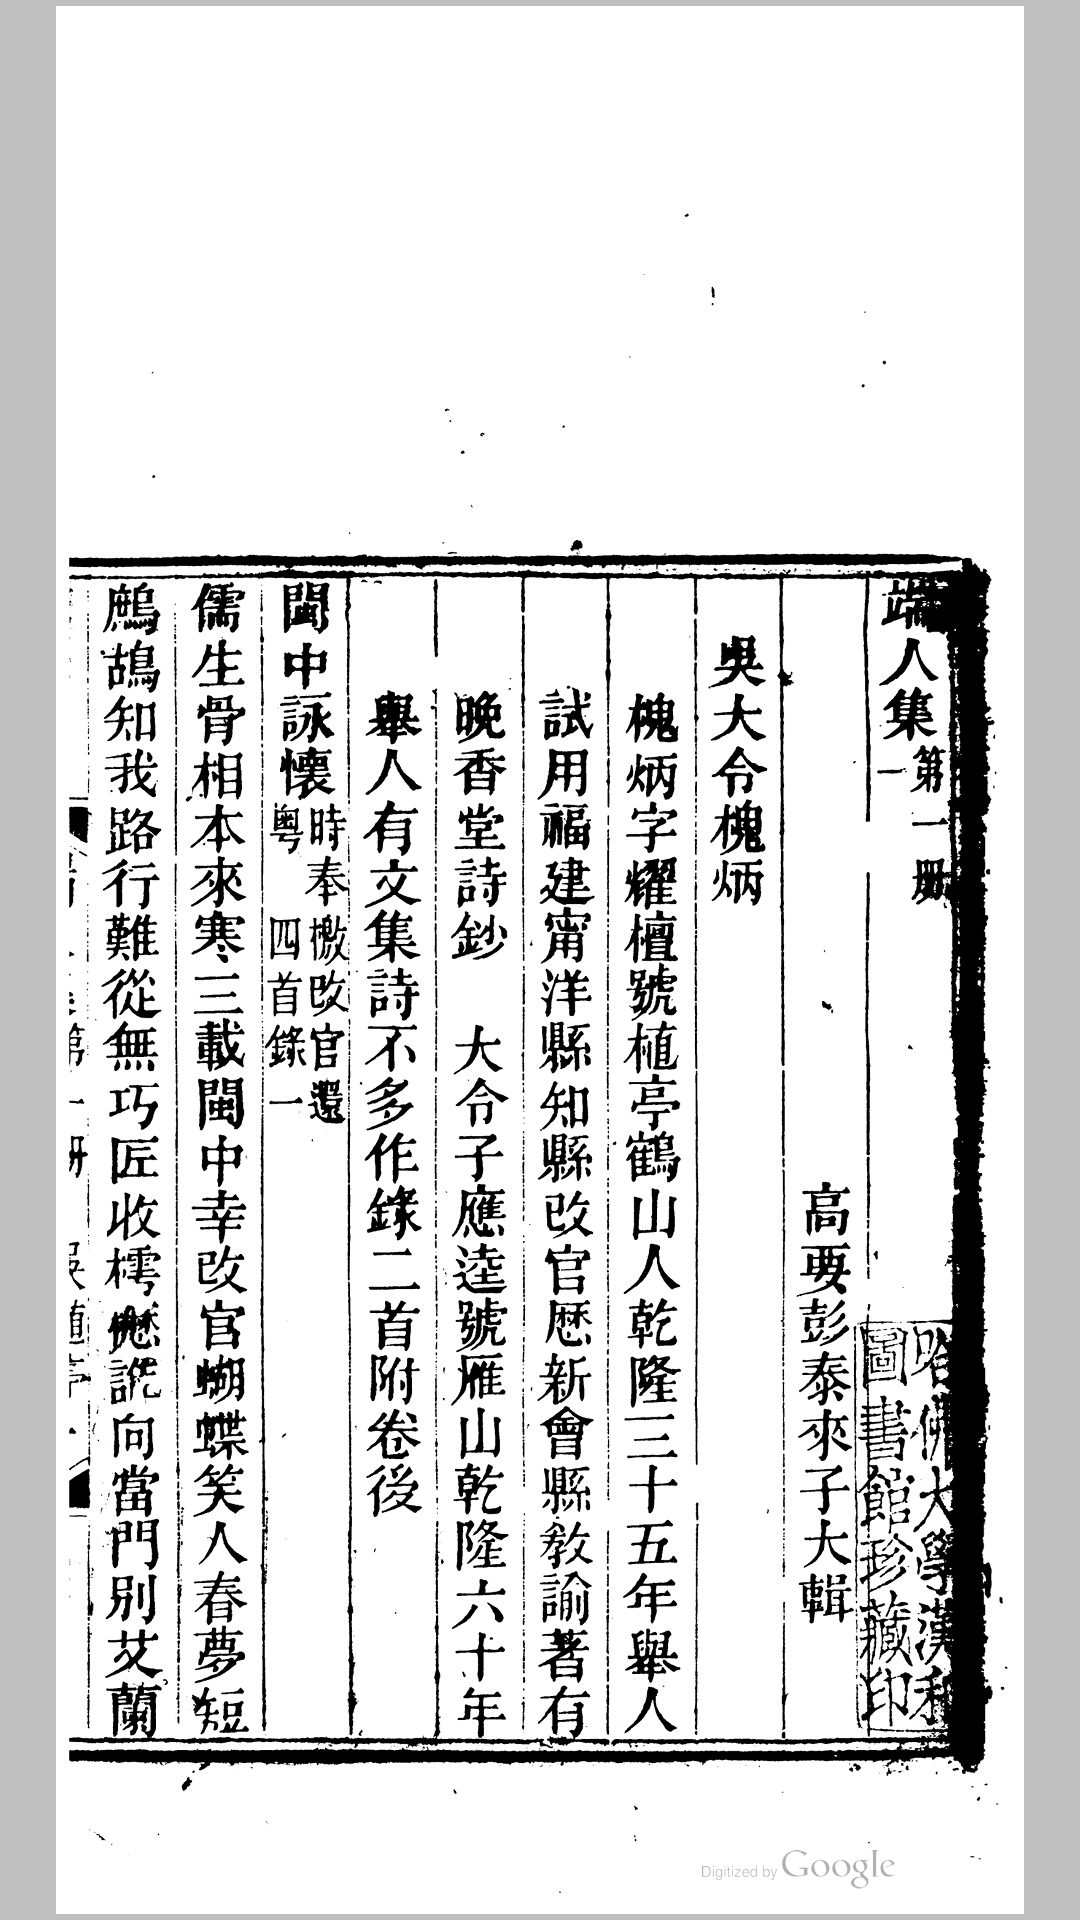 端人集第一册一
高要彭泰來子大輯
吳大令槐炳
槐炳字耀檀號植亭鶴山人乾隆三十五年舉人
試用福建甯洋縣知縣改官歷新會縣教諭著有
晚香堂詩鈔　大令子應逵號雁山乾隆六十年
舉人有文集詩不多作錄二首附卷後
閩中詠懷時奉檄改官還粤　四首錄一
儒生骨相本來寒三載閩中幸改官蝴蝶笑人春夢短
鷓鴣知我路行難從無巧匠收樗櫟詵向當門別艾蘭
第一册
哈佛大學漢和
圖書館珍藏印
Digitized by Google